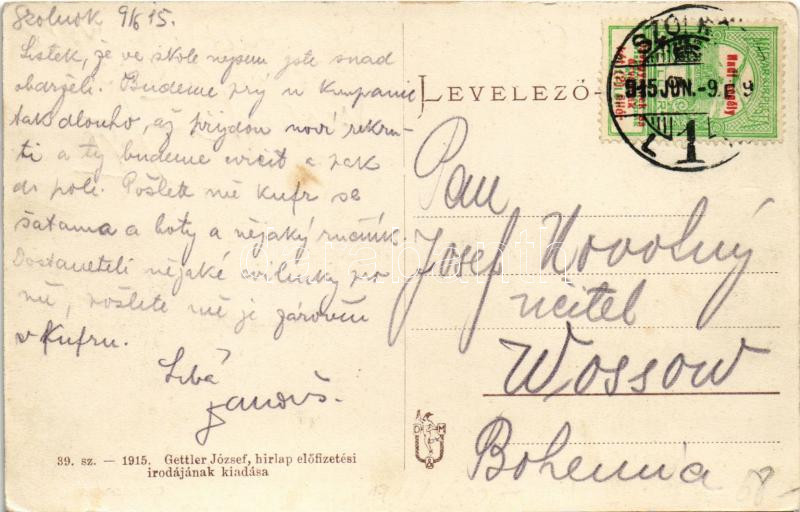 Szolnok 9/6 15.
Lístek, že ve škole nejsem jste snad
obdrželi. Budeme prý u kumpanie
tak dlouho, až přijdou noví rekru-
ti a ty budeme cvičit a pak
do pole. Pošlete mě kufr se
šatama a boty a nějaký ručník.
Dostaneteli nějaké cvilinky pro
mě, pošlete mě je zároveň
v kufru.
Líbá
39. sz. — 1915. Gettler József, hirlap előfizetési
irodájának kiadása
LEVELEZŐ-
SZOLN
915 JUN. -9.
1
Pan
Josef Novotný
učitel
Wossow
Bohemia
D M
68-